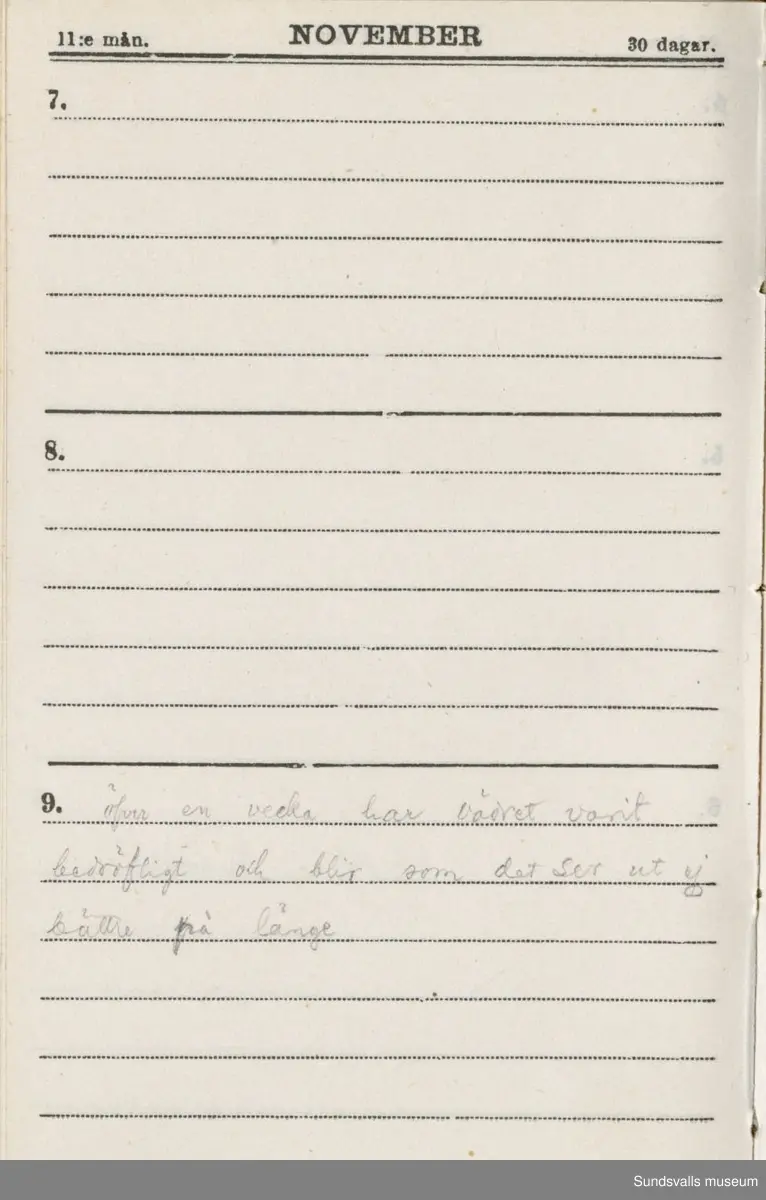 11:e mån. NOVEMBER 30 dagar.
7.
8.
9. öfver en vecka har vädret varit
bedröfligt och blir som det ser ut ej
bättre på länge
Sundsvalls museum